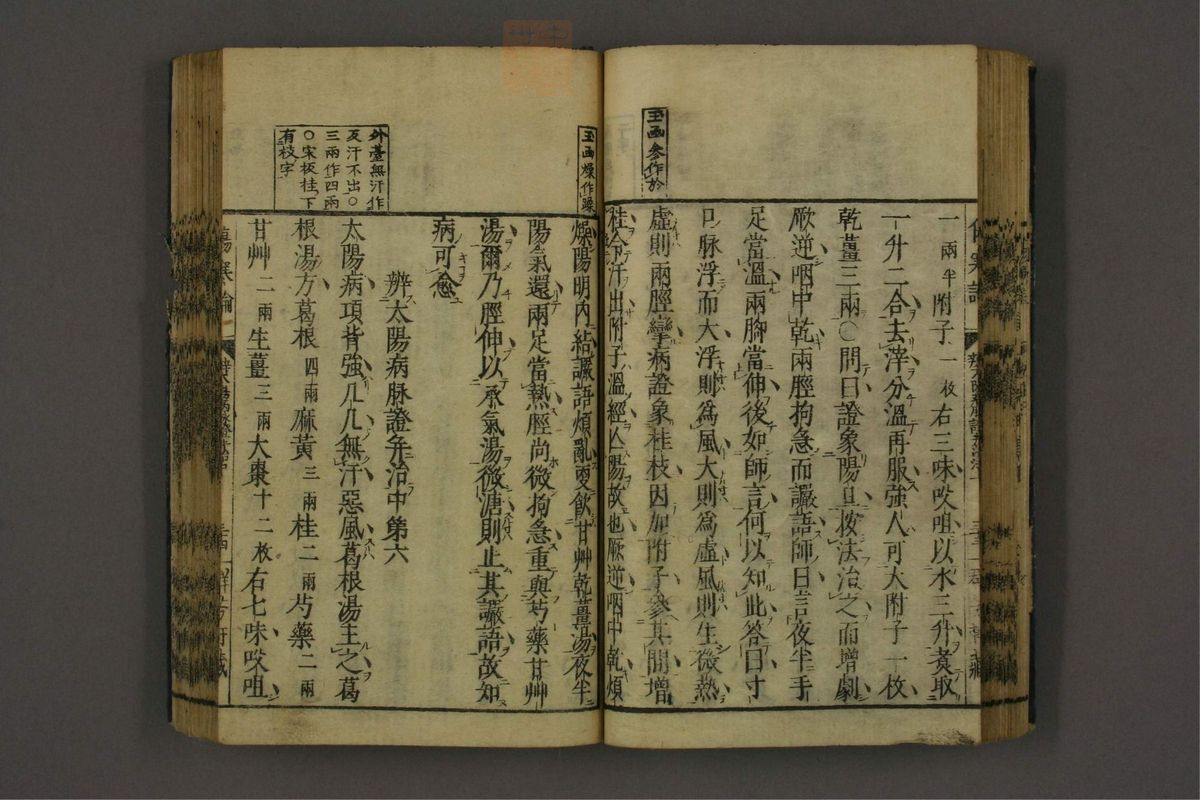 玉函參作於
一兩半附子一枚右三味㕮咀以水三升煮取
一升二合去滓分溫再服強人可大附子一枚
乾薑三兩○問曰證象陽旦按法治之而增劇
厥逆咽中乾兩脛拘急而讝語師曰言夜半手
足當溫兩脚當伸後如師言何以知此答曰寸
口脉浮而大浮則爲風大則爲虛風則生微熱
虛則兩脛攣病證象桂枝因加附子參其間增
桂令汗出附子溫經亡陽故也厥逆咽中乾煩
玉函燥作躁
燥陽明內結讝語煩亂更飮甘艸乾薑湯夜半
陽氣還兩足當熱脛尚微拘急重與芍藥甘艸
湯爾乃脛伸以承氣湯微溏則止其讝語故知
病可愈
外臺無汗作
反汗不出○
三兩作四兩
○宋板桂下
有枝字
辨太陽病脉證幷治中第六
太陽病項背強几几無汗惡風葛根湯主之葛
根湯方葛根四兩麻黃三兩桂二兩芍藥二兩
甘艸二兩生薑三兩大棗十二枚右七味㕮咀